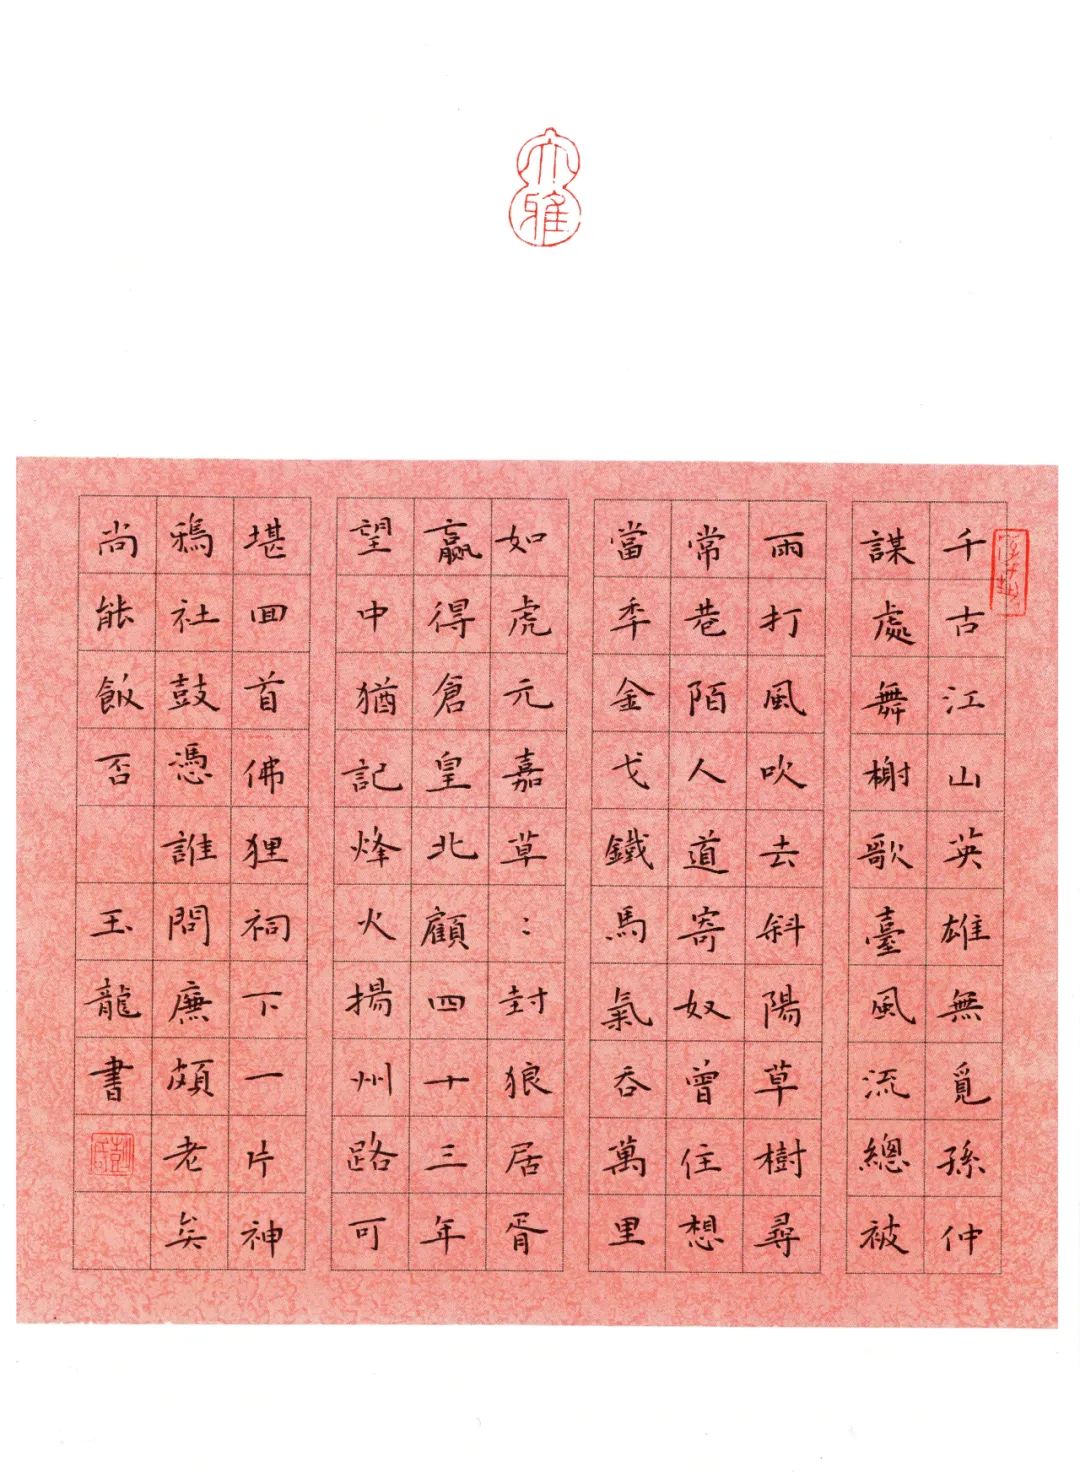 大雅
千古江山英雄無覓孫仲
謀處舞榭歌臺風流總被
雨打風吹去斜陽草樹尋
常巷陌人道寄奴曾住想
當秊金戈鐵馬氣吞萬里
如虎元嘉草:封狼居胥
贏得倉皇北顧四十三年
望中猶記烽火揚州路可
堪回首佛狸祠下一片神
鴉社鼓憑誰問廉頗老矣
尚能飯否 玉龍書